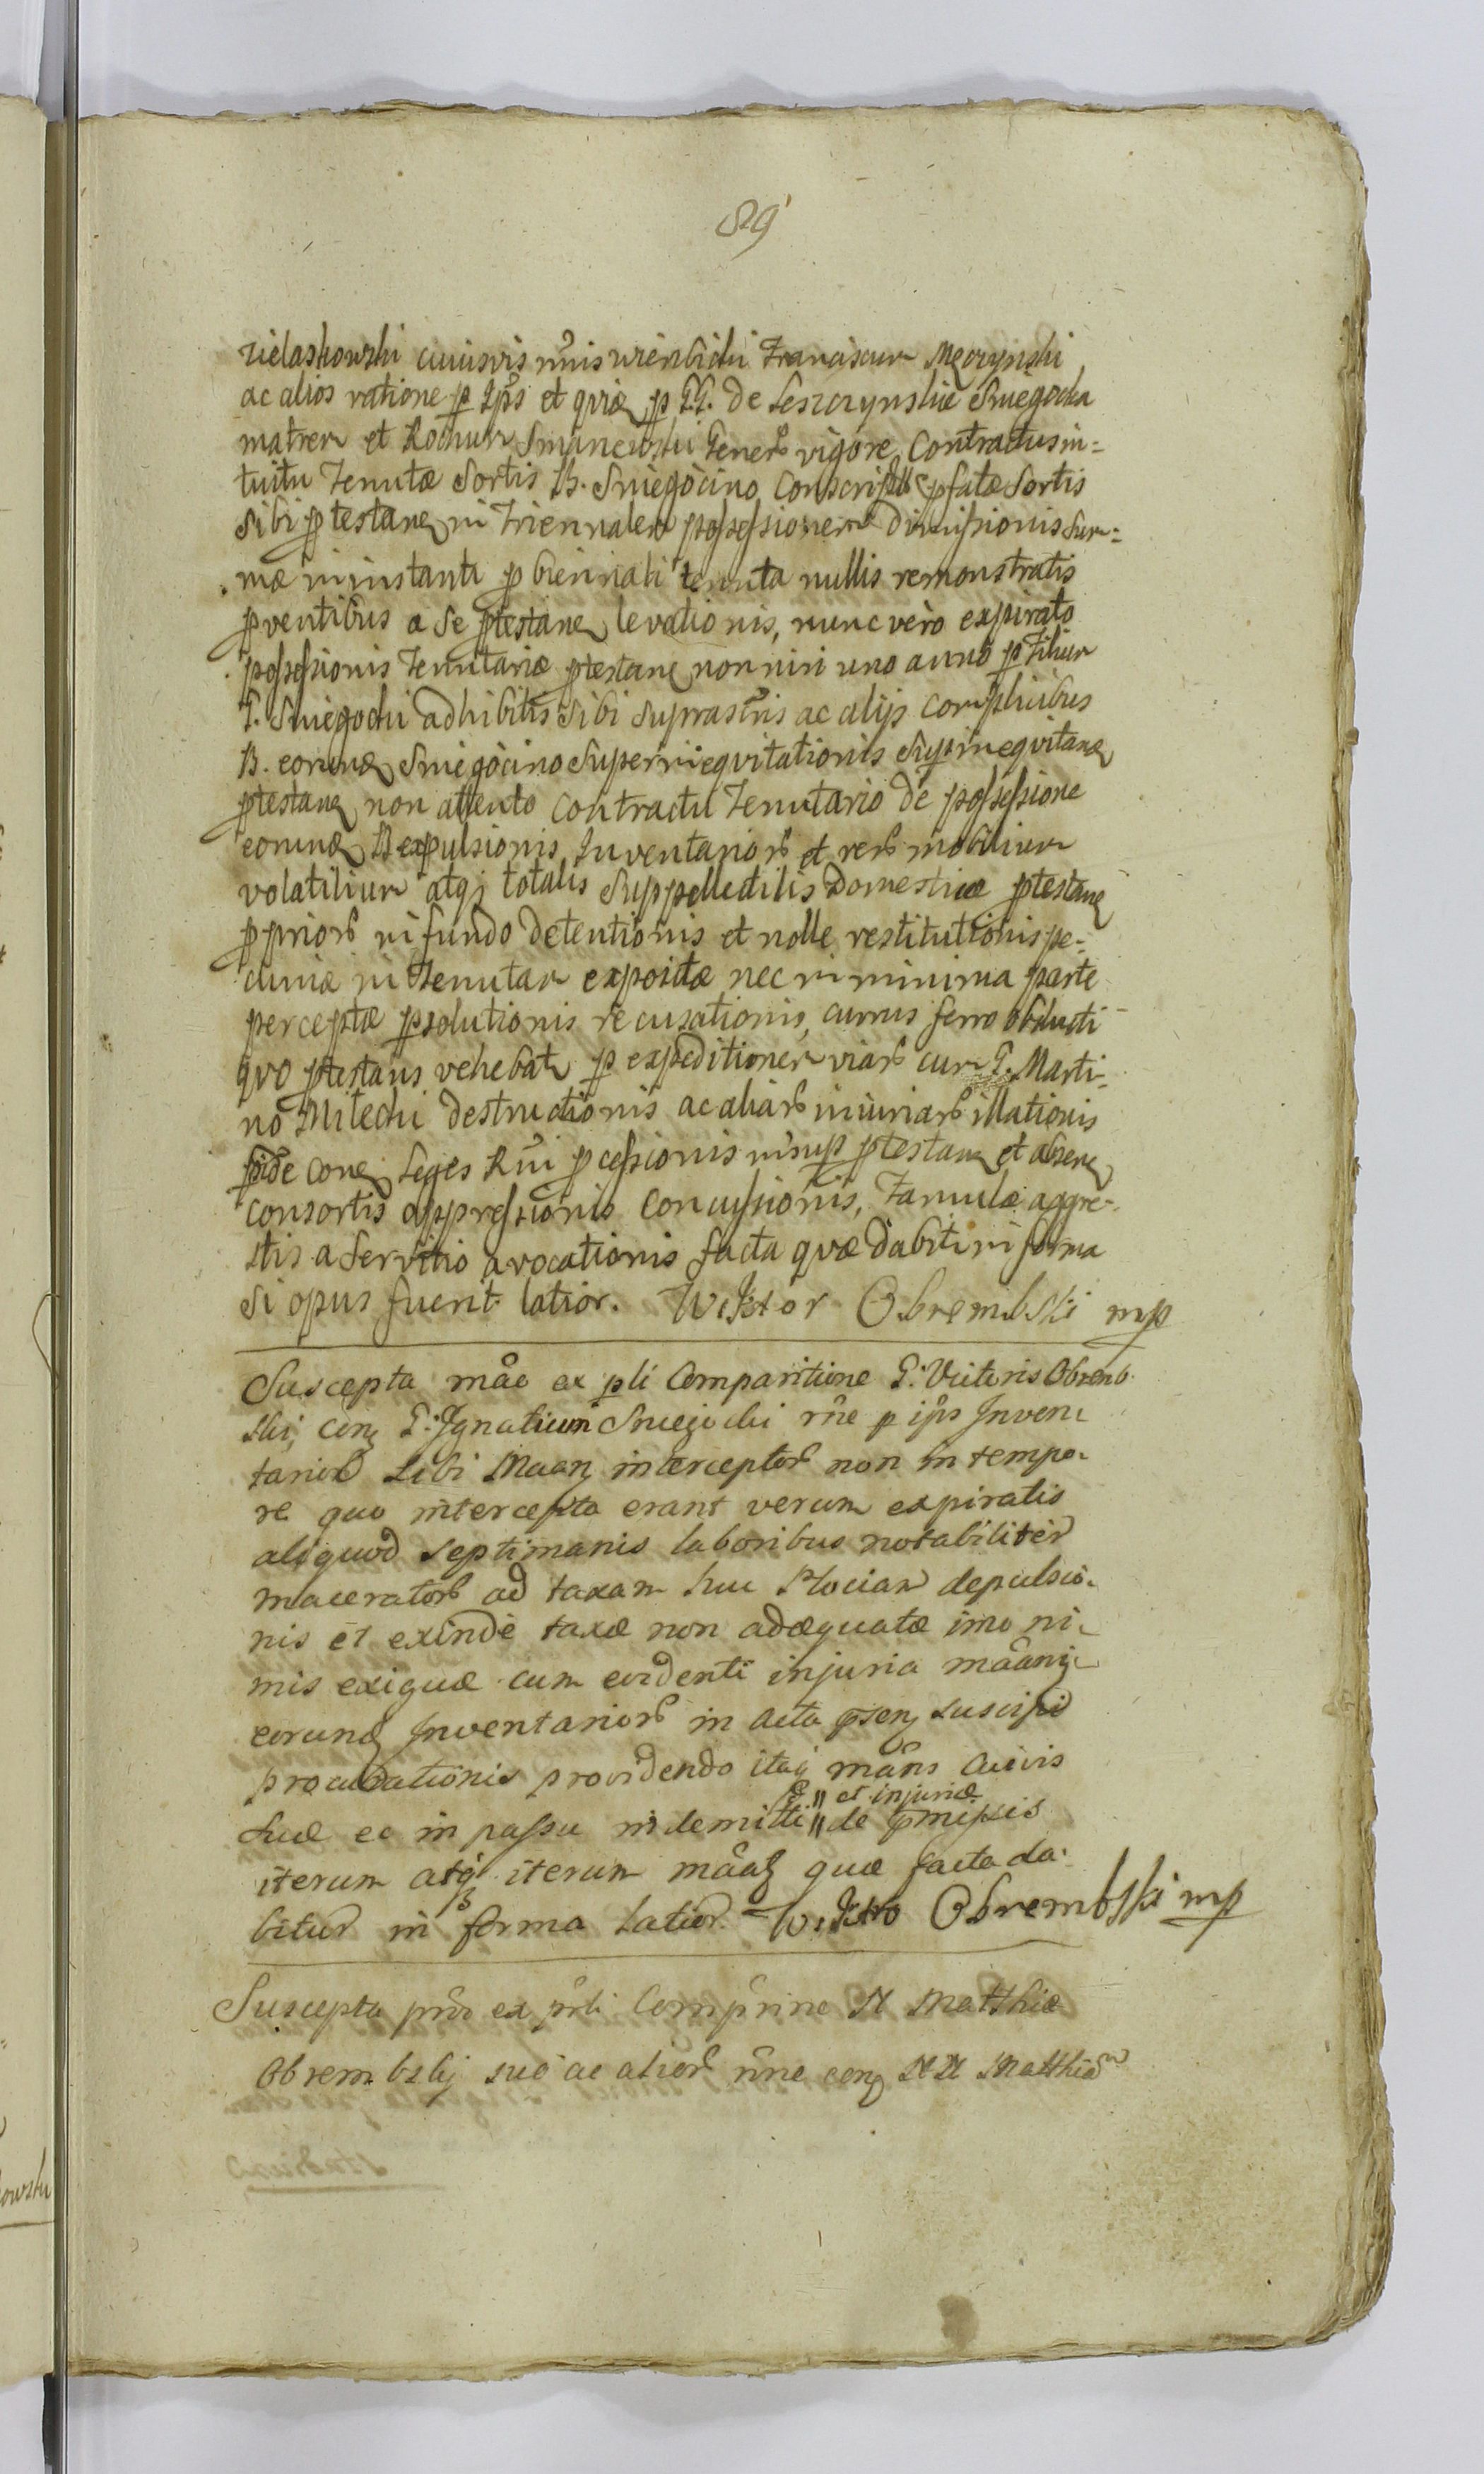 89
Zielaskowski cuiusvis nõis Wienbicki Franciscum Męczynski
ac alios ratione p Ipõs et quia p GG. de Leszczynskie Sniegocka
matrem et Rochum Smanewski Generõ vigore Contractus in=
tuitu Tenutæ Sortis B. Sniegocino Conscripti pfatæ Sortis
sibi ptestanę in Triennalem possessionem dimissionis sum=
mæ in instanti p biennali tenuta nullis remonstratis
pventibus a se ptestanę levationis, nunc vero expirato
possessionis Tenutariæ ptestanę non nisi uno anno p Filium
G. Sniegocki adhibitis sibi suprascõis ac alijs complicibus
B. eorundę Sniegocino Superinequitationis Supinequitanę
ptestanę non attento Contractu Tenutario de possessione
eorundę B expulsionis, Inventariorõ et rerõ mobilium
volatilium atqз totalis Suppellectilis Domesticæ ptestanę
ppriorõ in fundo detentionis et nolle restitutionis pe=
cuniæ in Tenutam expositæ nec in minima parte
perceptæ psolutionis recusationis, currus ferro obducti
quo ptestans vehebatę p expeditionem viarõ cum G. Marti=
no Mitecki destructionis ac aliarõ iniuriarõ illationis
pside conę Leges Rũi pcessionis insup ptestanę et absenę
Consortis oppressionis Concussionis, Famulæ aggre=
stis a servitio avocationis facta quæ dabitę in forma
si opus fuerit latior. Wiktor Obrembski mp
Suscepta mãõ ex pli Comparitione G: Victoris Obremb
ski, conę G: Ignatium Sniegocki rñe p ipõs Inven
tariorõ sibi Maanę interceptorõ non in tempo
re quo intercepta erant verum expiratis
aliquod septimanis laboribus notabiliter
maceratorõ ad taxam huc Plociam depulsio
nis et exinde taxæ non adæquatæ imo ni
mis exiguæ cum evidenti injuria mãanę
eorundę Inventariorõ in acta psenę suscipi
procurationis providendo itaqз mãns cuivis
et injuriæ
suæ ec in passu indemitti de pmissis
iterum atqз iterum mãatę quæ facta da
bitur in forma latior Wiktor Obrembski mp
Suscepta pñõ ex pñli Compñine N Matthiæ
Obrembskj suõ ac aliorõ rñne conę NN Matthiãm